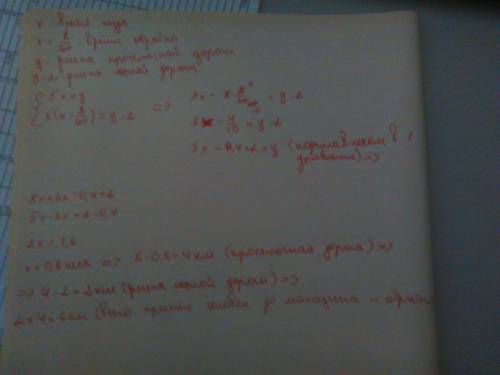 x - время туда
x - 8/60 - время обратно
y - длина просёлочной дороги
y-2 - длина лесной дороги
{ 5x = y
{ 3(x - 8/60) = y-2 =>
3x - 3 · 8/60 = y-2
3x - 4/10 = y-2
3x - 0,4+2 = y (подставляем в 1
уравнение) =>
5x = 3x - 0,4+2
5x - 3x = 2-0,4
2x = 1,6
x = 0,8 часа => 5·0,8 = 4 км (просёлочная дорога) =>
=> 4-2 = 2 км (длина лесной дороги) =>
2+4 = 6 км (было прошёл человек до магазина и обратно